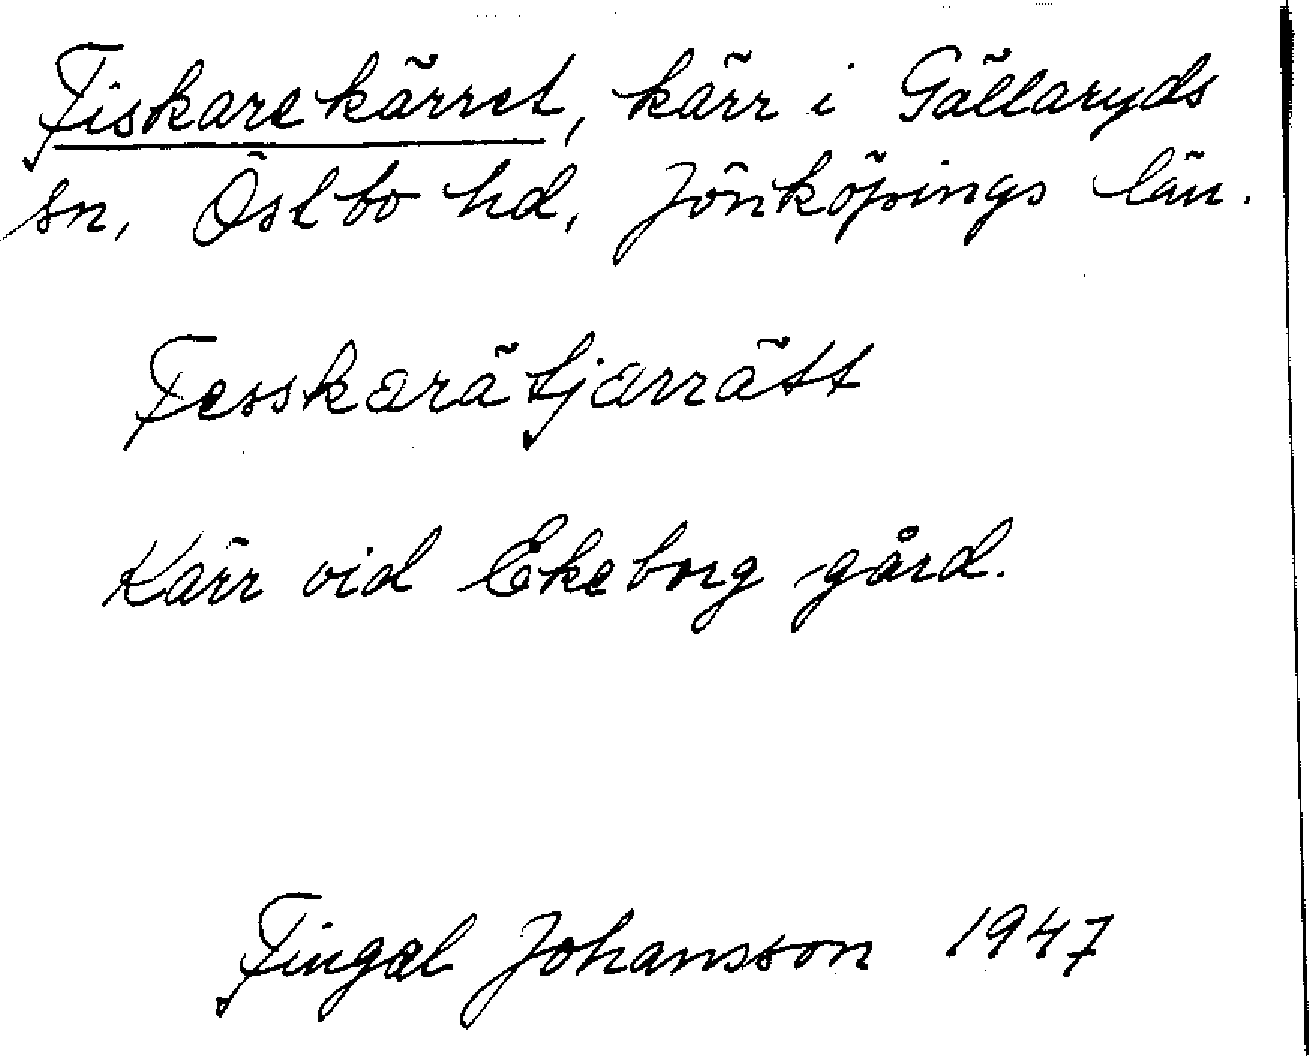 Fiskarekärret, kärr i Gällaryds
sn, Östbo hd, Jönköpings län.
Fesskarätjarrätt
Kärr vid Ekeborg gård.
Fingal Johansson 1947